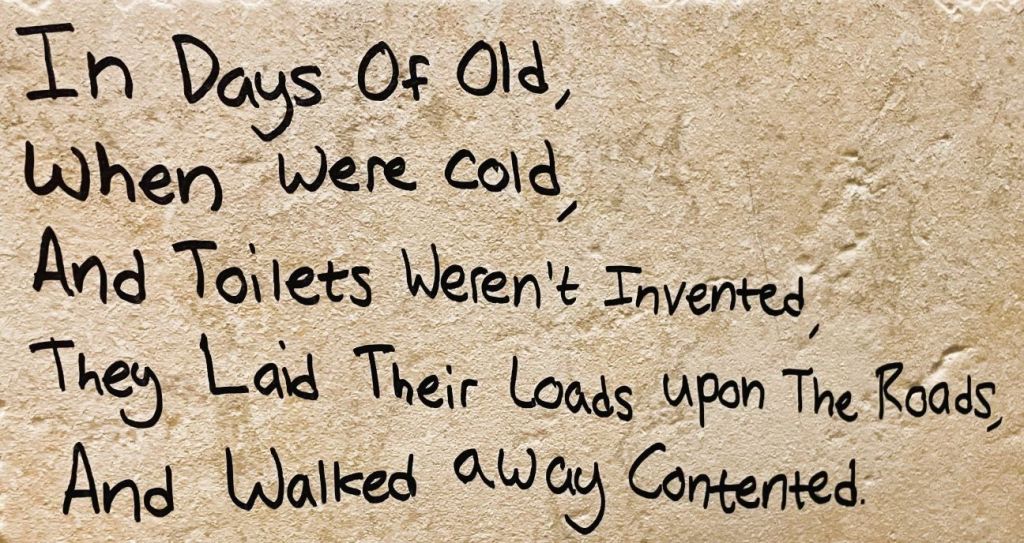 In Days Of Old,
When Were Cold,
And Toilets Weren't Invented,
They Laid Their Loads upon The Roads,
And Walked away Contented.